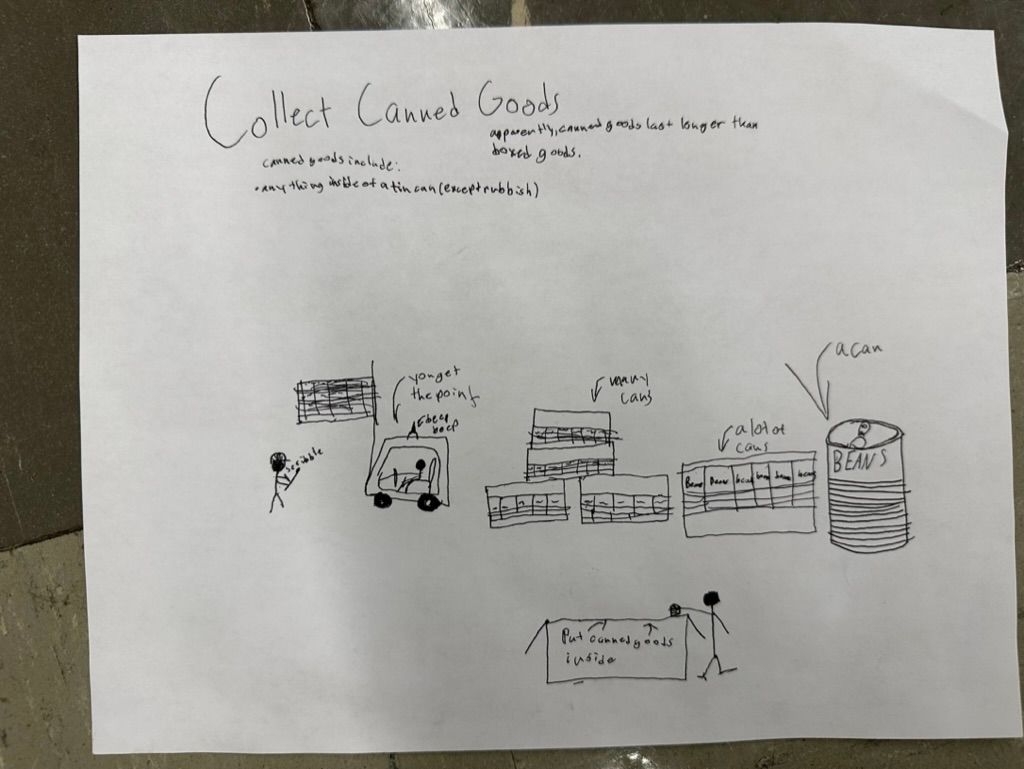 Collect Canned Goods
apparently, canned goods last longer than
boxed goods.
canned goods include:
• anything inside of a tin can (except rubbish)
a can
you get
the point
many
cans
beep
beep
a lot of
cans
scribble
BEANS
Beans Beans beans beans beans beans
Put canned goods
inside